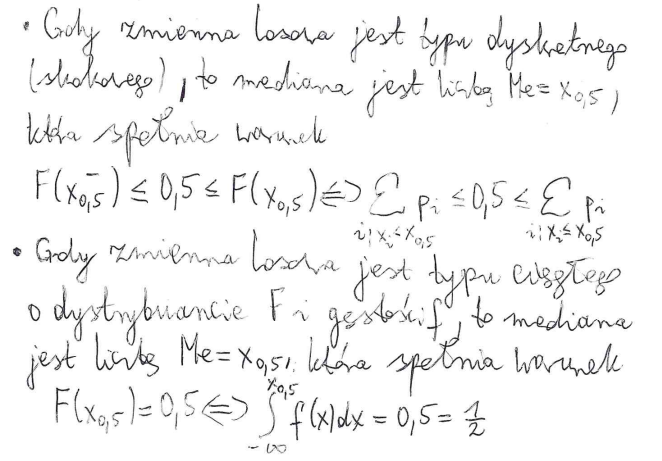 • Gdy zmienna losowa jest typu dyskretnego
(skokowego), to mediana jest liczbą Me = x₀,₅,
która spełnia warunek
F(x₀,₅⁻) ≤ 0,5 ≤ F(x₀,₅) ⟺ ∑ pᵢ ≤ 0,5 ≤ ∑ pᵢ
i; xᵢ ≤ x₀,₅ i; xᵢ ≤ x₀,₅
• Gdy zmienna losowa jest typu ciągłego
o dystrybuancie F i gęstości f, to mediana
jest liczbą Me = x₀,₅, która spełnia warunek
F(x₀,₅) = 0,5 ⟺ ∫_{-∞}^{x₀,₅} f(x)dx = 0,5 = 1/2